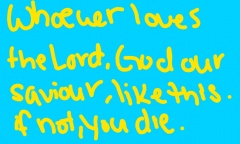 Whoever loves
the Lord, God our
saviour, like this.
if not, you die.